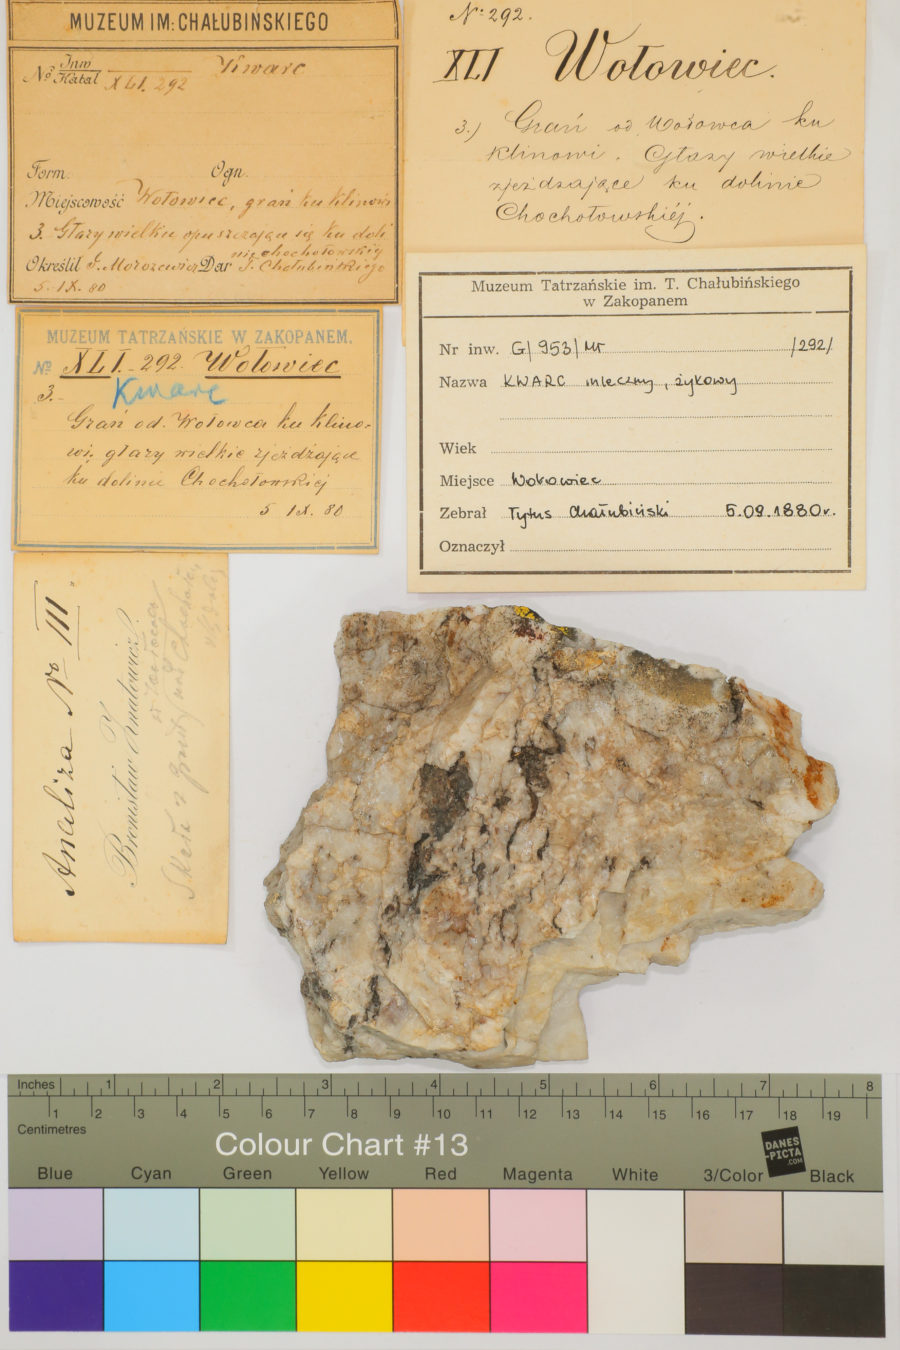 MUZEUM IM: CHAŁUBIŃSKIEGO
No Inw
Katal XLI. 292 Kwarc
Form. Ogn.
Miejscowość Wołowiec, grań ku Klinowi
3. Głazy wielkie opuszczające się ku doli
nie chochołowskiej
Określił J. Morozewicz Dar T. Chałubińskiego
5. IX. 80
No 292.
XLI Wołowiec.
3.) Grań od Wołowca ku
Klinowi. Głazy wielkie
zjeżdżające ku dolinie
Chochołowskiéj.
MUZEUM TATRZAŃSKIE W ZAKOPANEM.
No XLI. 292. Wołowiec
3.- Kwarc
Grań od. Wołowca ku Klino-
wi. głazy wielkie zjeżdżające
ku dolinie Chochołowskiej
5 IX. 80
Muzeum Tatrzańskie im. T. Chałubińskiego
w Zakopanem
Nr inw. G/953/Mt /292/
Nazwa KWARC mleczny, żyłowy
Wiek
Miejsce Wołowiec
Zebrał Tytus Chałubiński 5.09.1880r.
Oznaczył
Analiza No III.
Bronisław Znatowicz?
Skała z
Inches 1 2 3 4 5 6 7 8
1 2 3 4 5 6 7 8 9 10 11 12 13 14 15 16 17 18 19
Centimetres
Colour Chart #13
DANES
-PICTA
.COM
Blue Cyan Green Yellow Red Magenta White 3/Color Black